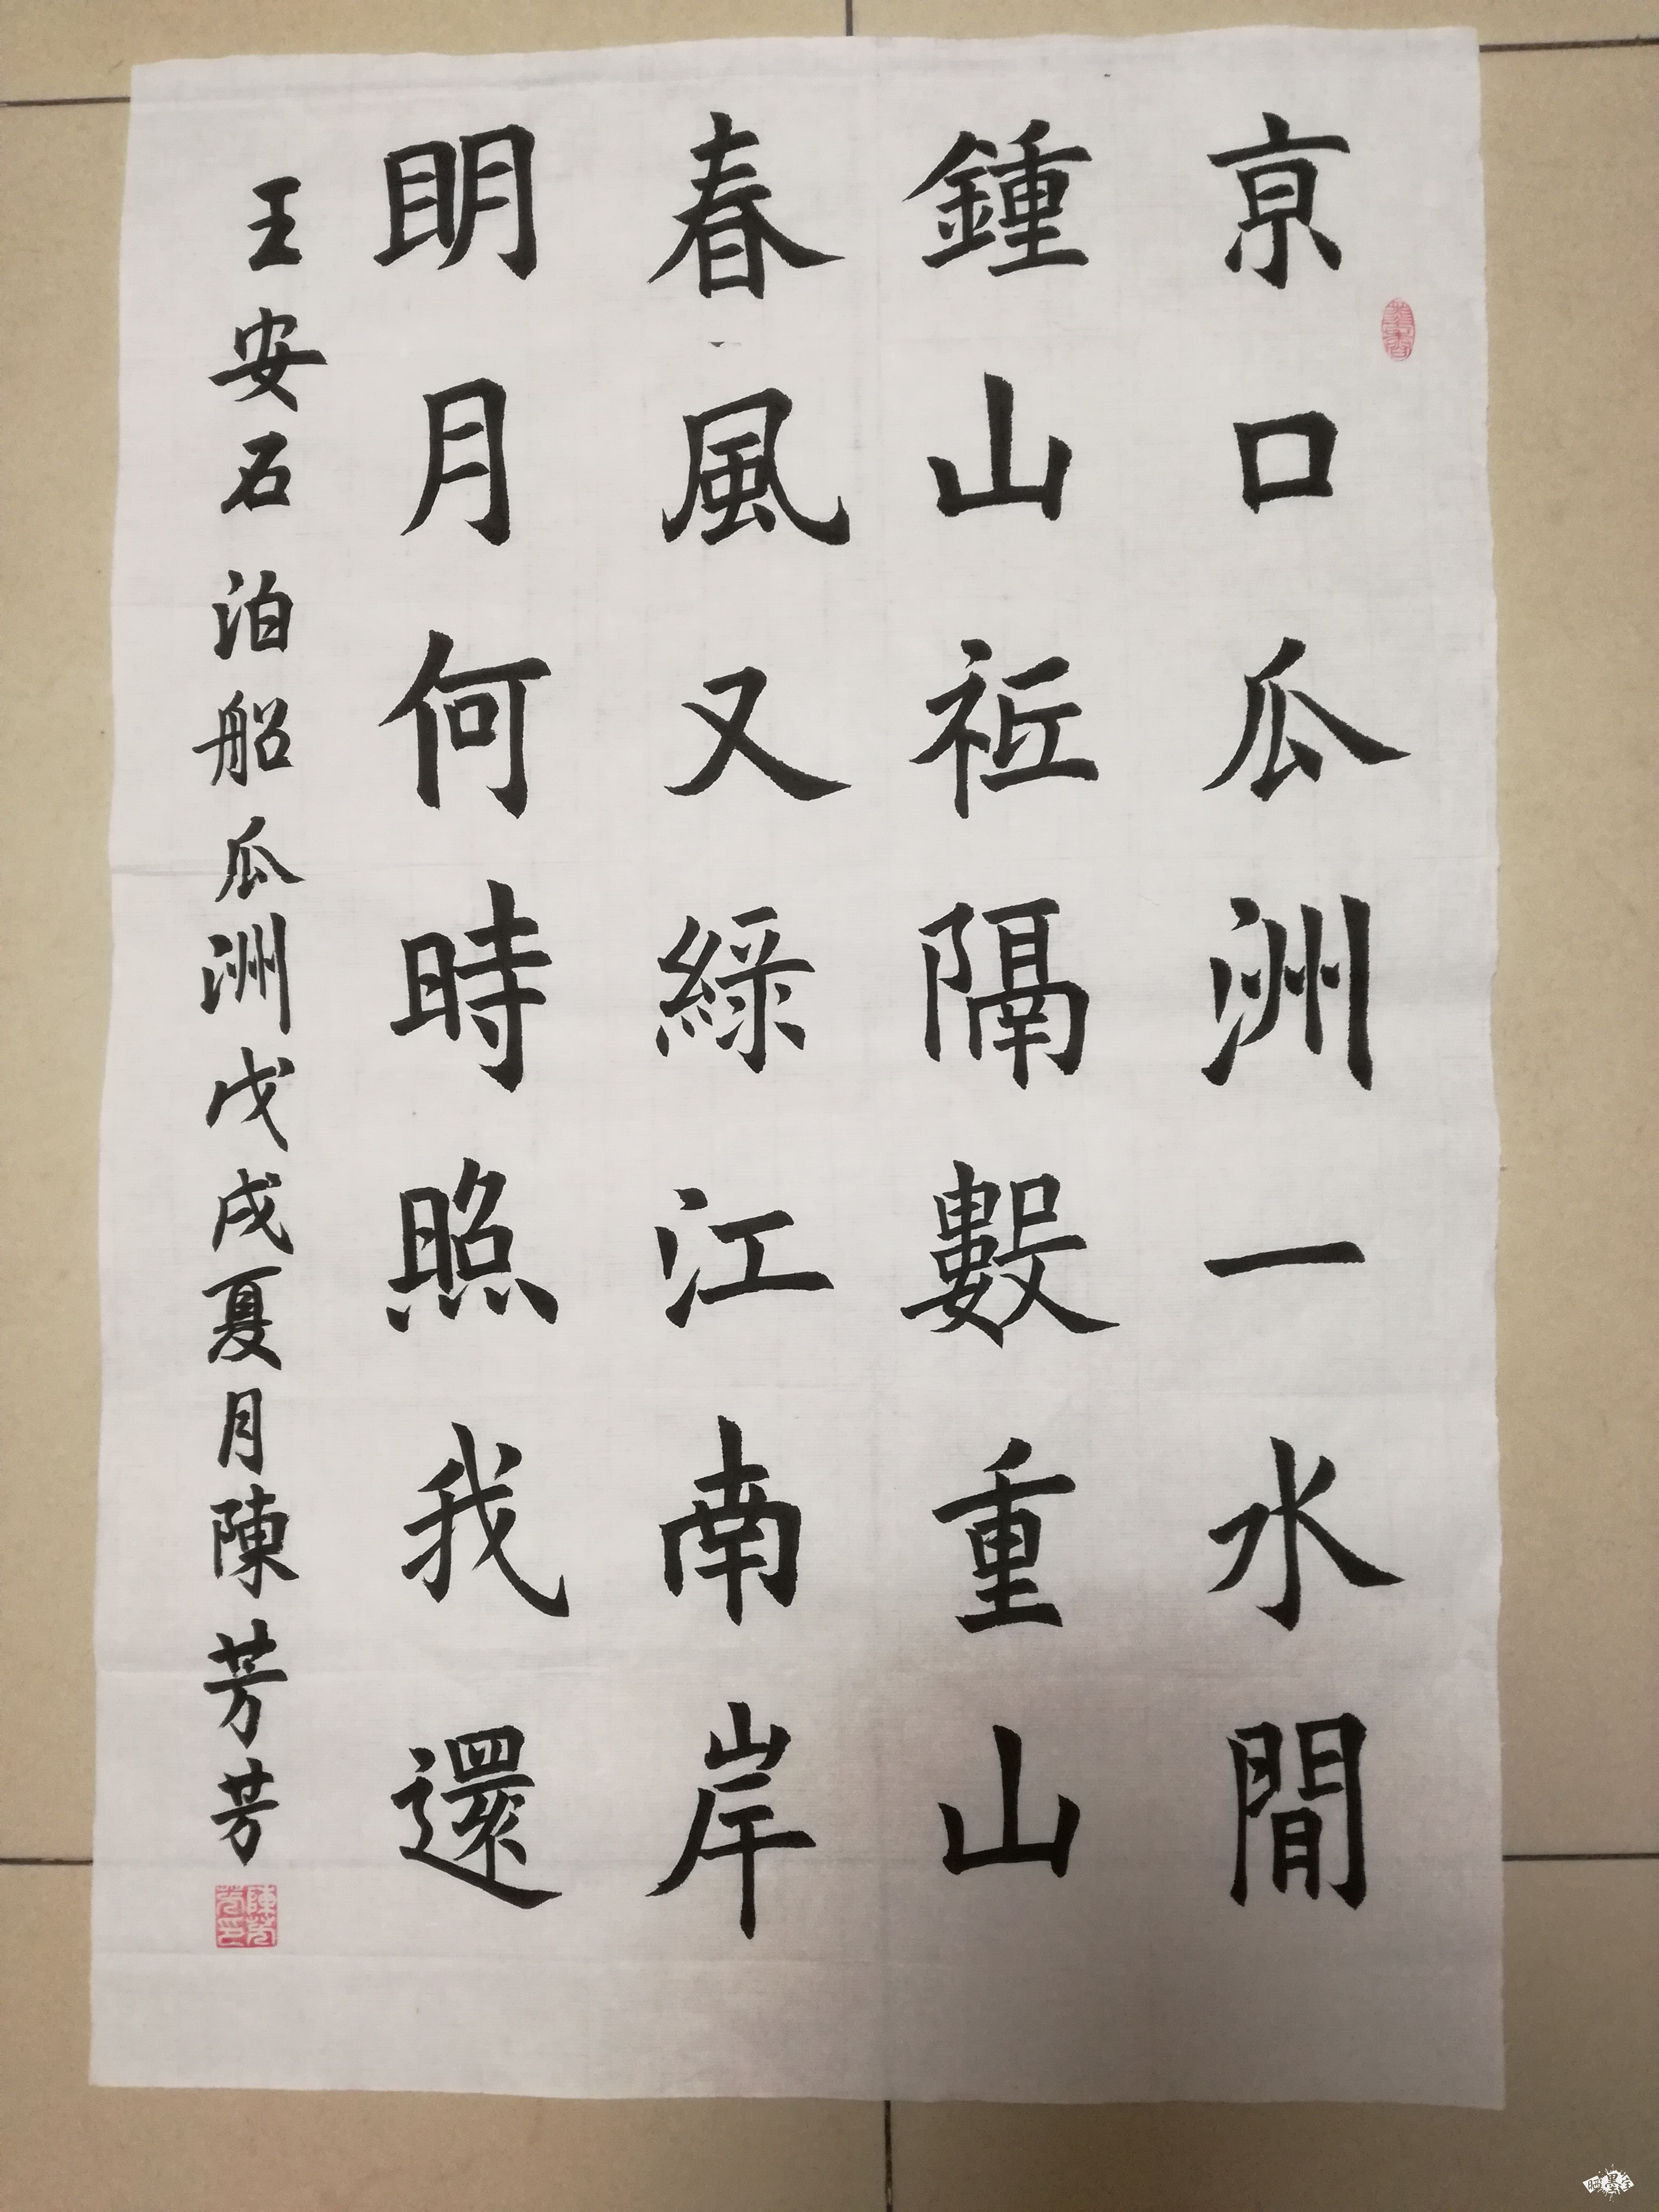 京口瓜洲一水間
鍾山祗隔數重山
春風又綠江南岸
明月何時照我還
王安石泊船瓜洲戊戌夏月陳芳芳